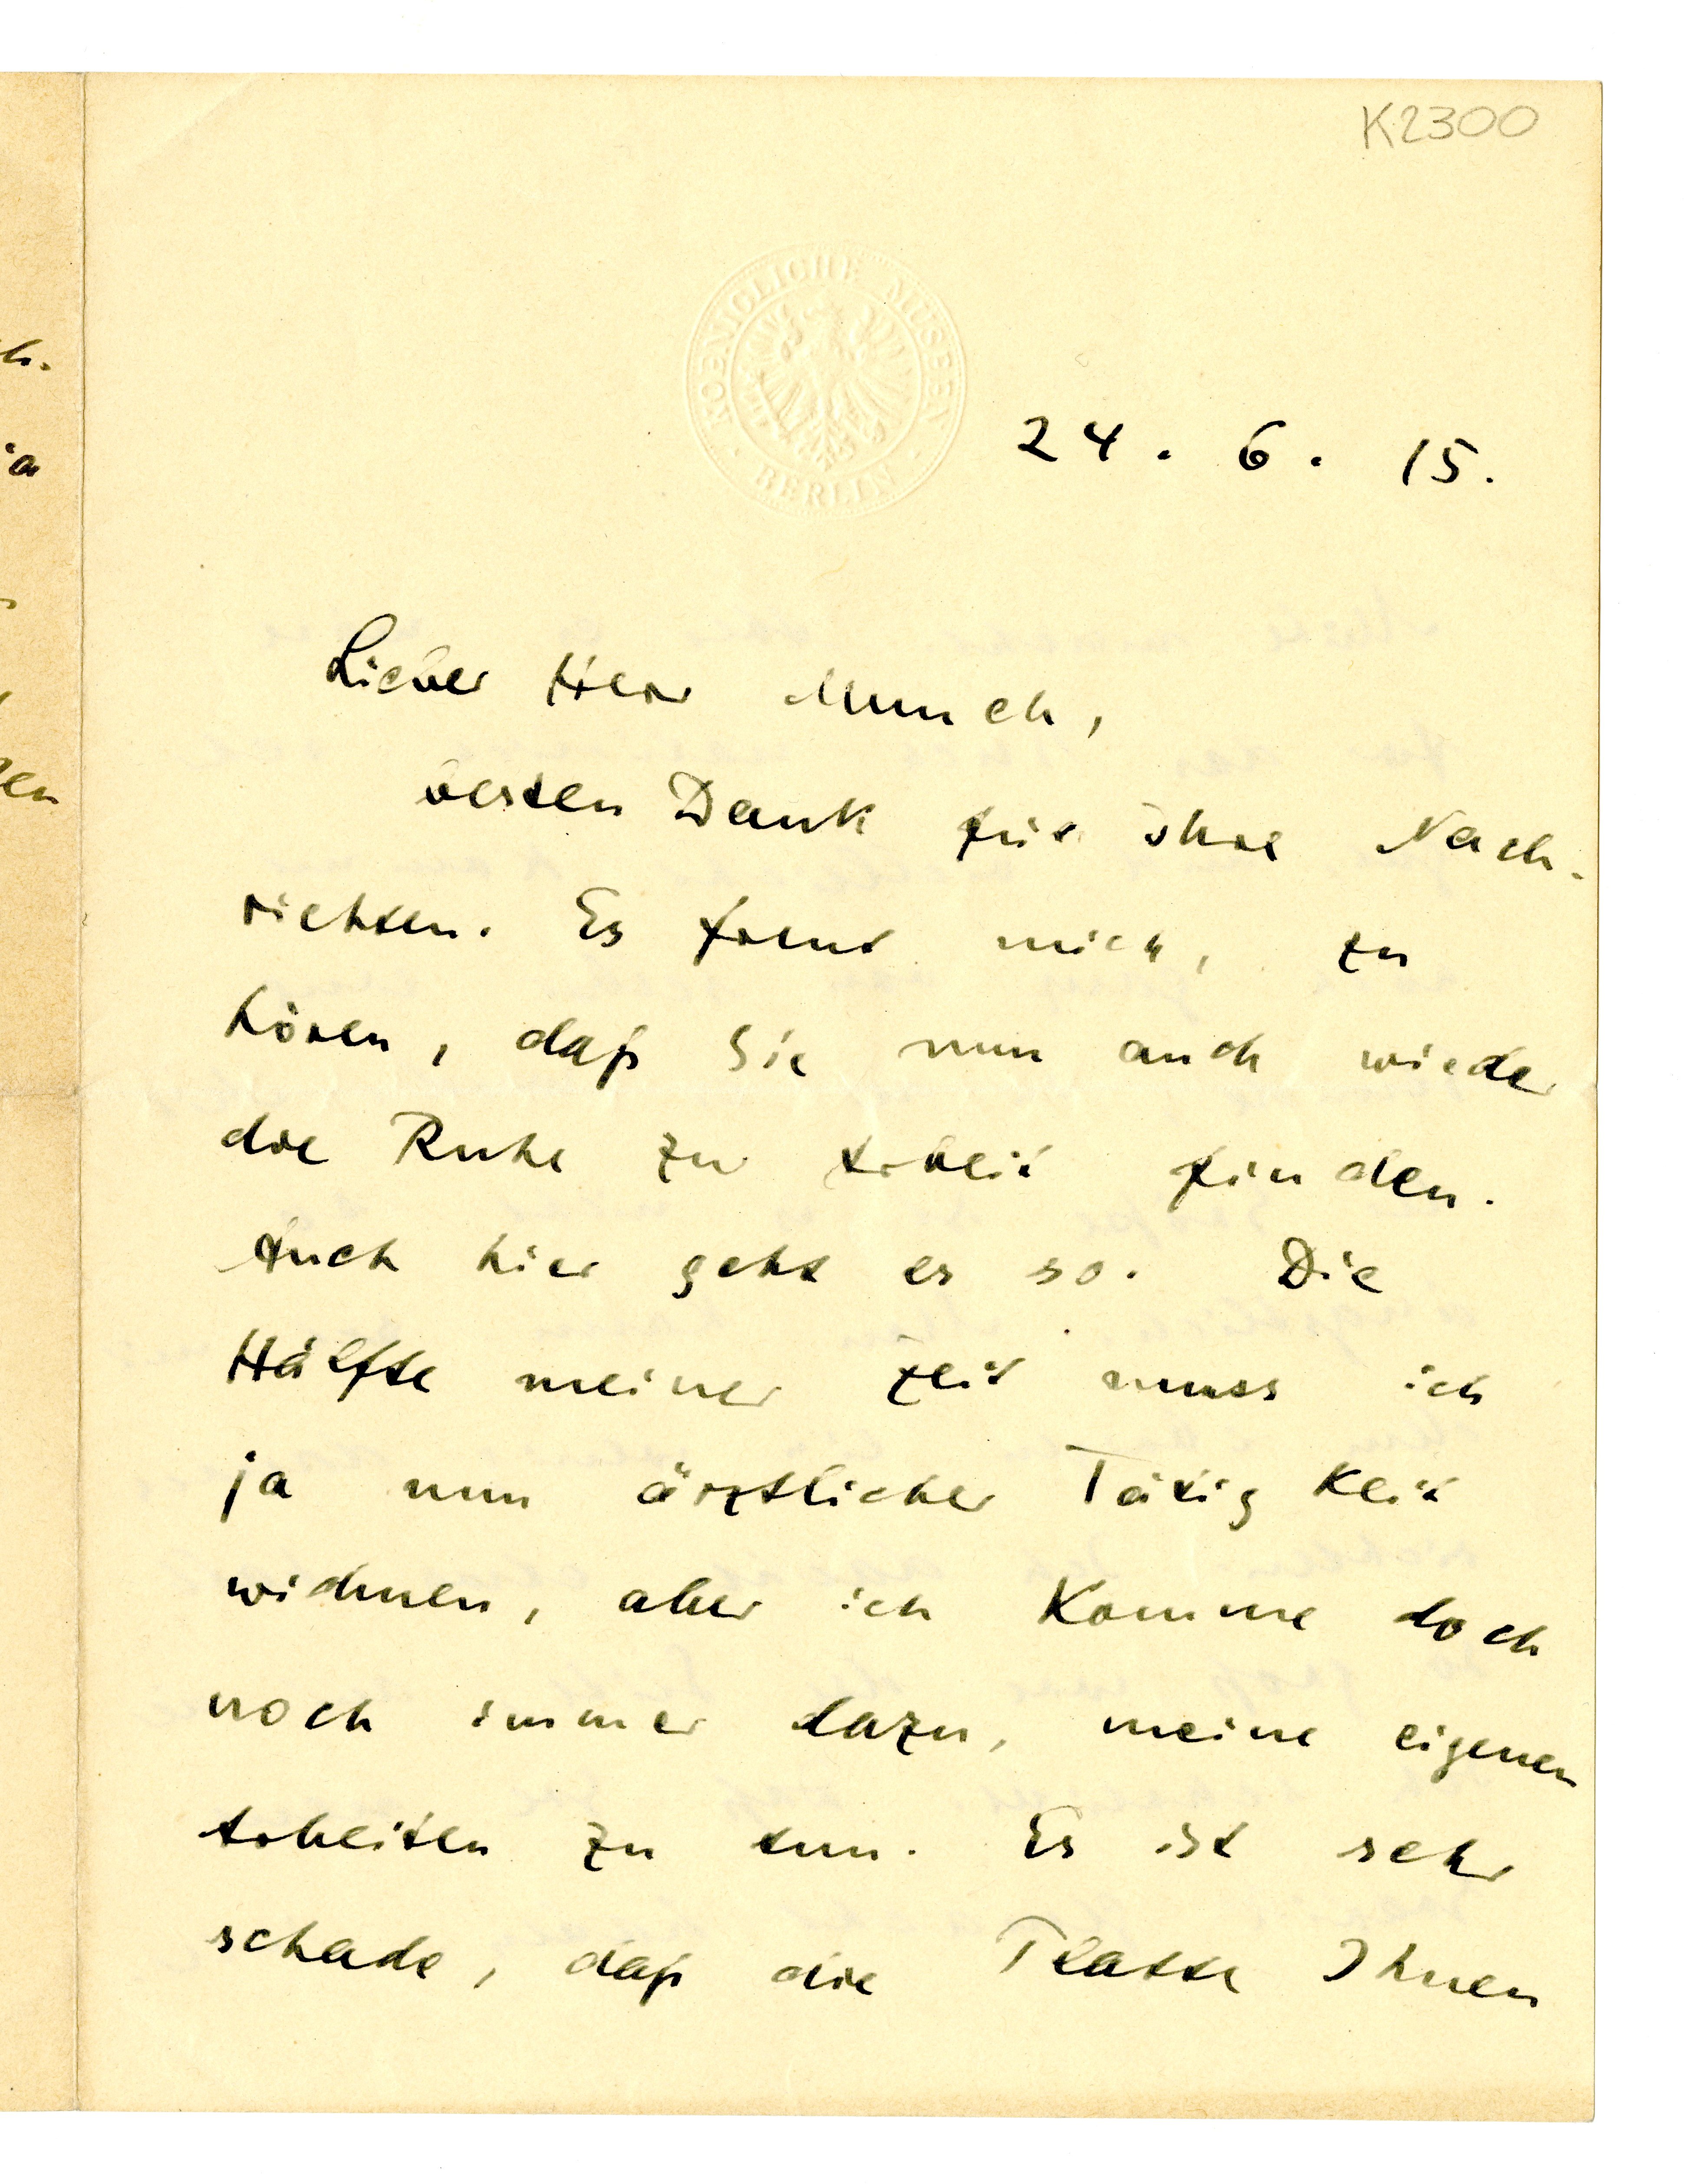 K2300
KOENIGLICHE MUSEEN
· BERLIN ·
24. 6. 15.
Lieber Herr Munch,
besten Dank für ihre Nach-
richten. Es freut mich, zu
hören, daß Sie nun auch wieder
die Ruhe zur Arbeit finden.
Auch hier geht es so. Die
Hälfte meiner Zeit muss ich
ja nun ärztlicher Tätigkeit
widmen, aber ich komme doch
noch immer dazu, meine eigenen
Arbeiten zu tun. Es ist sehr
schade, daß die Platte Ihnen
h.
ia
en